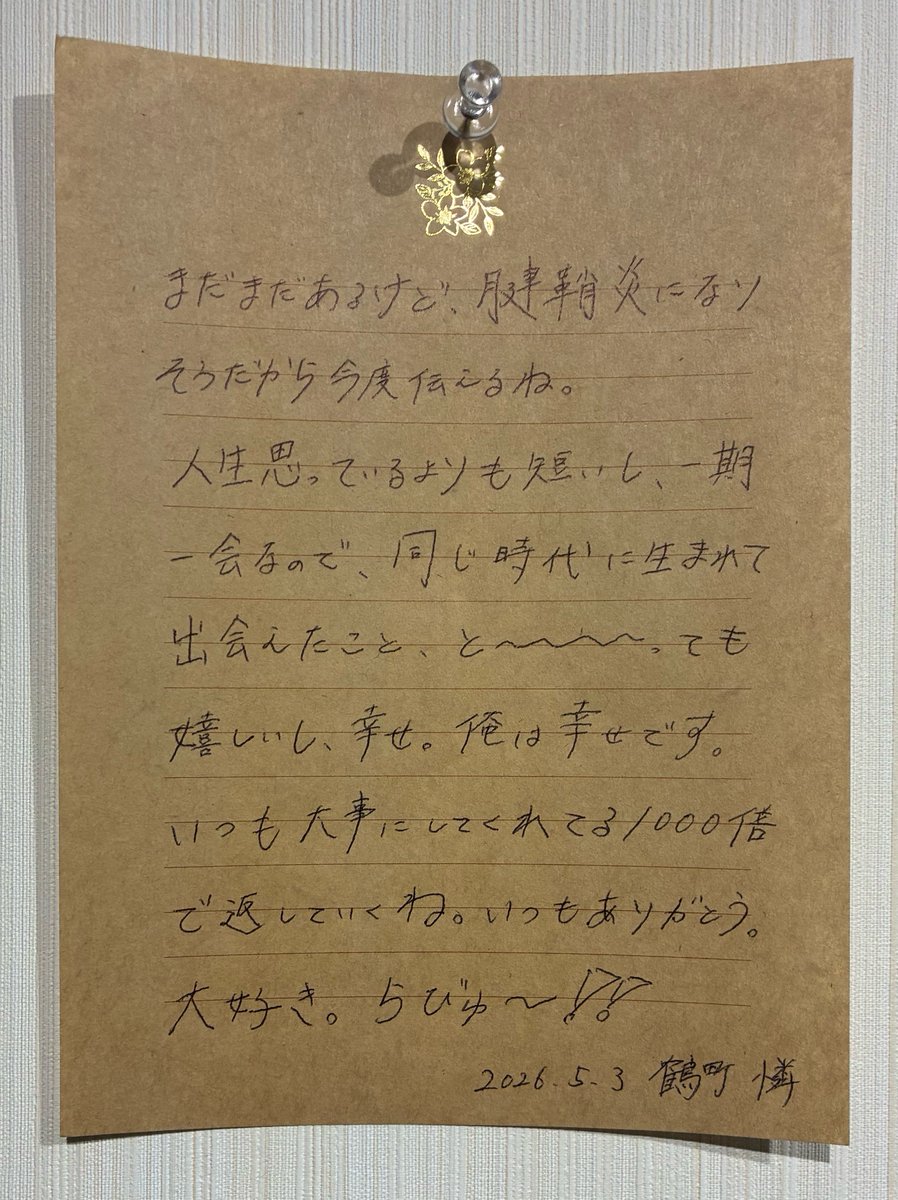 まだまだあるけど、腱鞘炎になり
そうだから今度伝えるね。
人生思っているよりも短いし、一期
一会なので、同じ時代に生まれて
出会えたこと、と〜〜〜〜っても
嬉しいし、幸せ。俺は幸せです。
いつも大事にしてくれてる1000倍
で返していくね。いつもありがとう。
大好き。らびゅ〜!!
2026.5.3 鶴町 憐